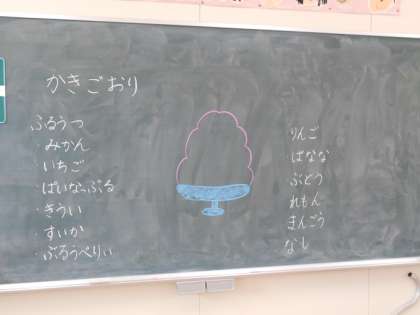 かきごおり
ふるうつ
・みかん
・いちご
・ぱいなっぷる
・きうい
・すいか
・ぶるうべりい
りんご
ばなな
ぶどう
れもん
まんごう
なし